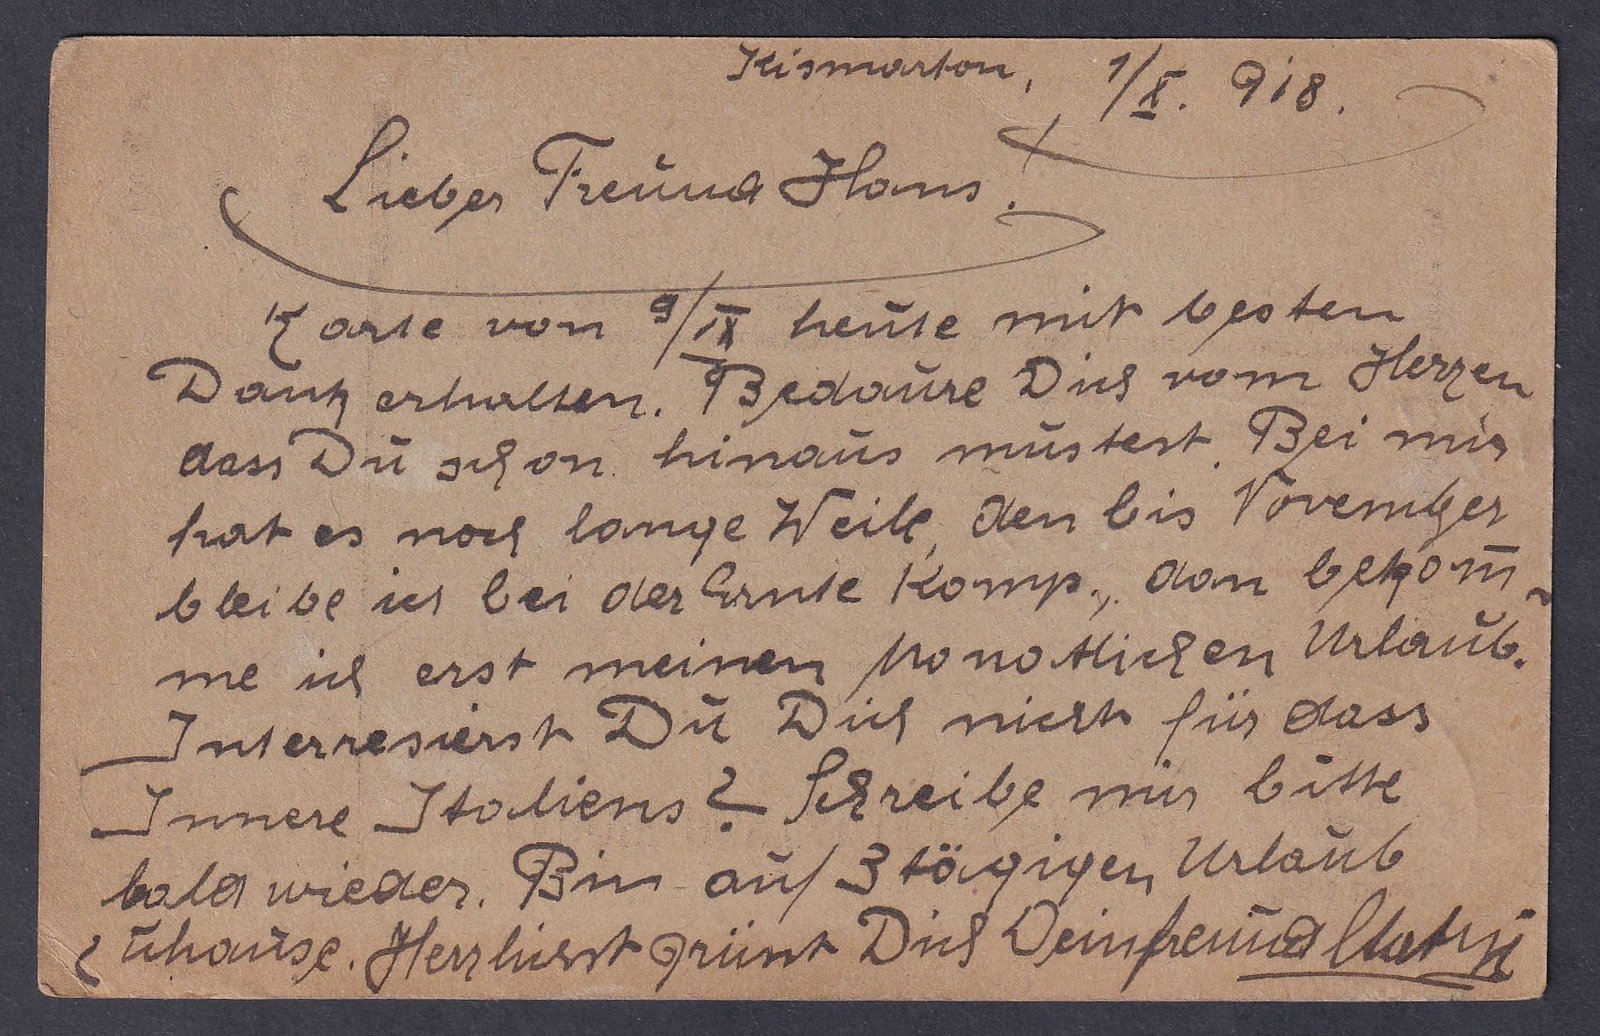 Kismarton, 1/X. 918.
Lieber Freund Hans!
Karte von 9/IX heute mit besten
Dank erhalten. Bedaure Dich vom Herzen
dass Du schon hinaus mustest. Bei mir
hat es noch lange Weile, den bis November
bleibe ich bei der Ernte Komp., dan bekom̅-
me ich erst meinen Monatlichen Urlaub.
Interresierst Du Dich nicht für dass
Innere Italiens? Schreibe mir bitte
bald wieder. Bin auf 3 tägigen Urlaub
zuhause. Herzlichst grünst Dich Dein freund